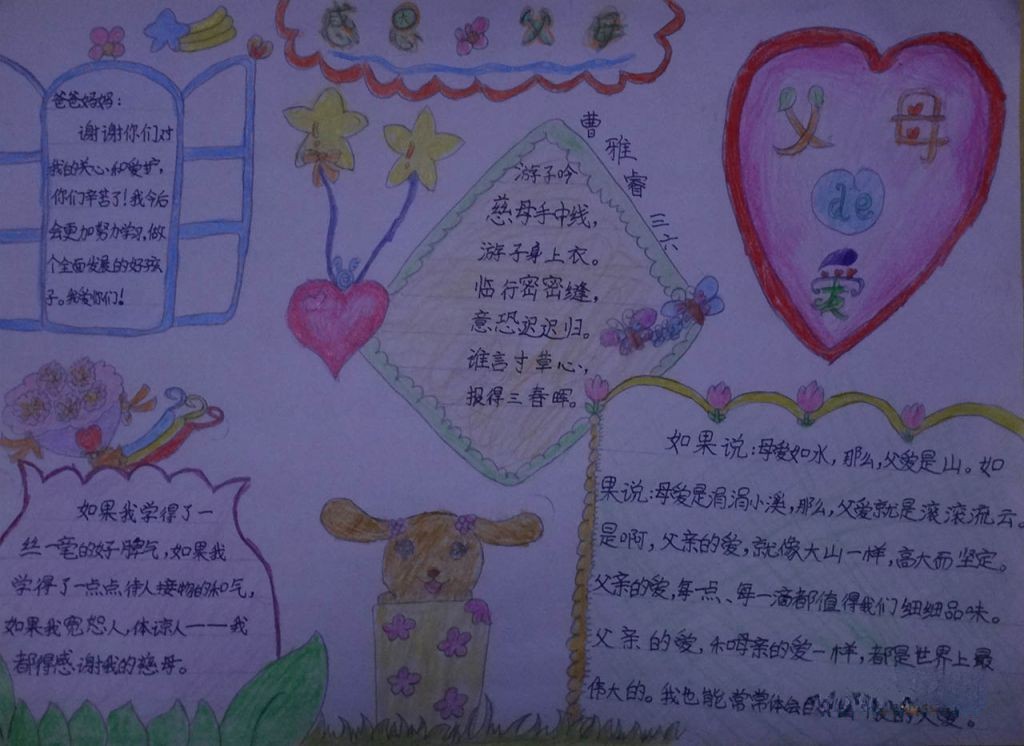 感恩父母
爸爸妈妈：
谢谢你们对
我的关心和爱护，
你们辛苦了！我今后
会更加努力学习，做
个全面发展的好孩
子。我爱你们！
曹雅睿 三六
游子吟
慈母手中线，
游子身上衣。
临行密密缝，
意恐迟迟归。
谁言寸草心，
报得三春晖。
父母
de
爱
如果我学得了一
丝一毫的好脾气，如果我
学得了一点点待人接物的和气，
如果我宽恕人，体谅人——我
都得感谢我的慈母。
如果说：母爱如水，那么，父爱是山。如
果说：母爱是涓涓小溪，那么，父爱就是滚滚流云。
是啊，父亲的爱，就像大山一样，高大而坚定。
父亲的爱，每一点、每一滴都值得我们细细品味。
父亲的爱，和母亲的爱一样，都是世界上最
伟大的。我也能常常体会